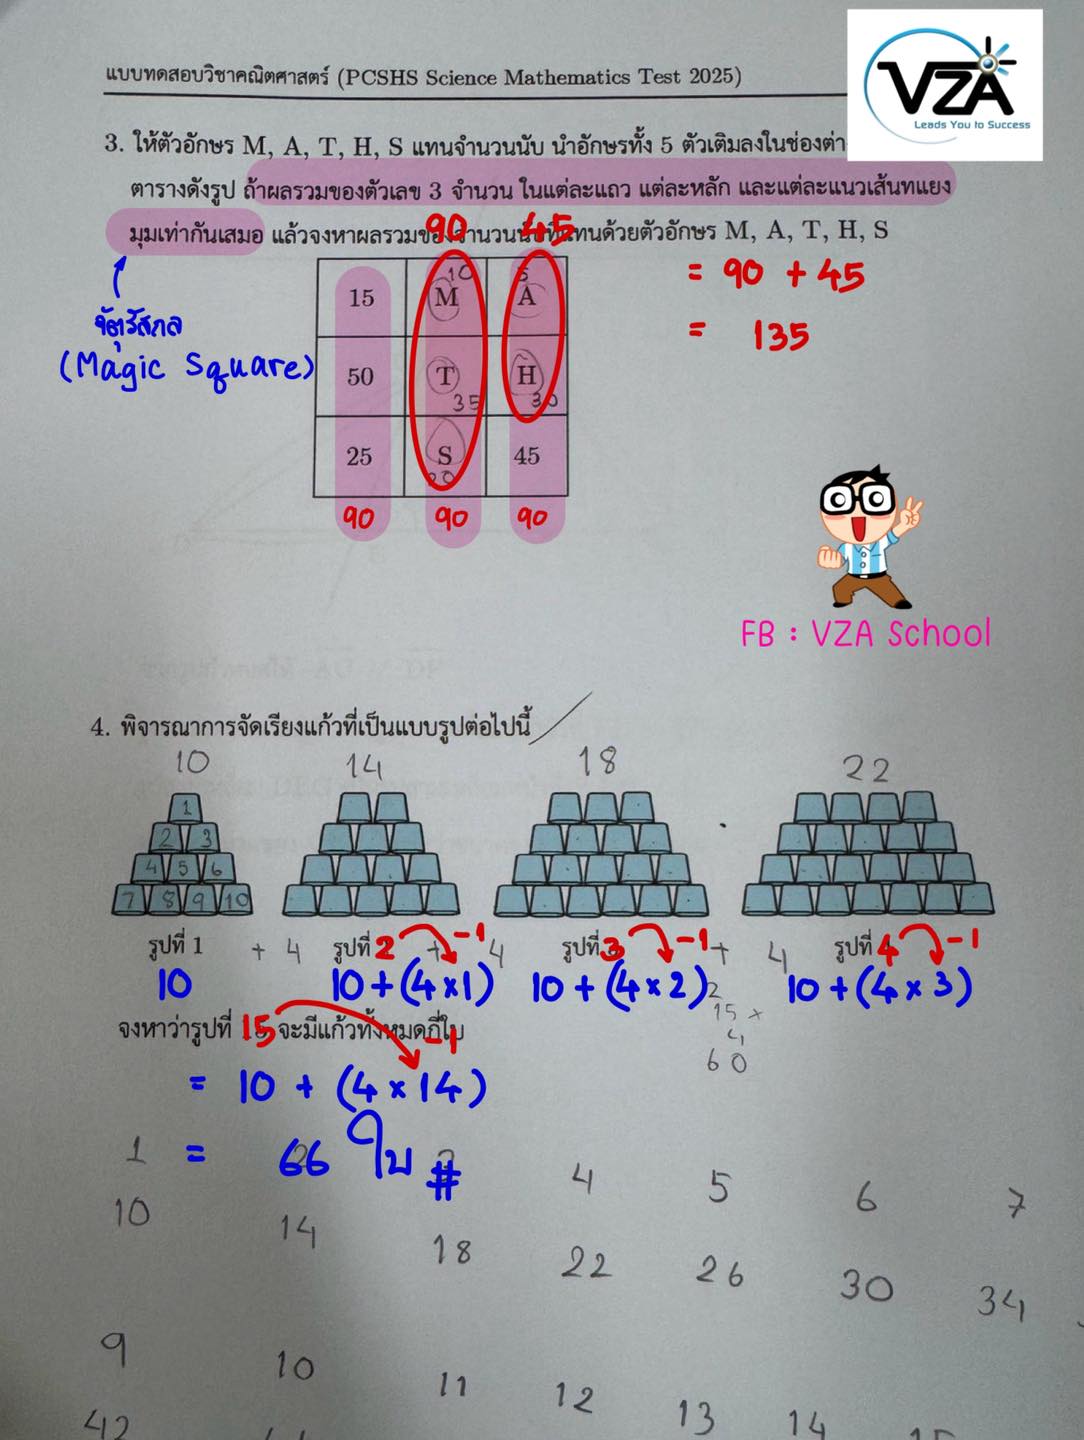 แบบทดสอบวิชาคณิตศาสตร์ (PCSHS Science Mathematics Test 2025)
VZA
Leads You to Success
3. ให้ตัวอักษร M, A, T, H, S แทนจำนวนนับ นำอักษรทั้ง 5 ตัวเติมลงในช่องต่า
ตารางดังรูป ถ้าผลรวมของตัวเลข 3 จำนวน ในแต่ละแถว แต่ละหลัก และแต่ละแนวเส้นทแยง
มุมเท่ากันเสมอ แล้วจงหาผลรวมของจำนวนนับที่แทนด้วยตัวอักษร M, A, T, H, S
90 45
= 90 + 45
= 135
จัตุรัสกล
(Magic Square)
15 M 10 A 5
50 T 35 H 30
25 S 20 45
90 90 90
FB : VZA School
4. พิจารณาการจัดเรียงแก้วที่เป็นแบบรูปต่อไปนี้
10 14 18 22
1
2 3
4 5 6
7 8 9 10
รูปที่ 1 + 4 รูปที่ 2 -1 + 4 รูปที่ 3 -1 + 4 รูปที่ 4 -1
10 10+(4×1) 10+(4×2) 10+(4×3)
2
15 ×
4
60
จงหาว่ารูปที่ 15 จะมีแก้วทั้งหมดกี่ใบ -1
= 10 + (4×14)
= 66 ใบ #
1 2 3 4 5 6 7
10 14 18 22 26 30 34
9 10 11 12 13 14 15
42